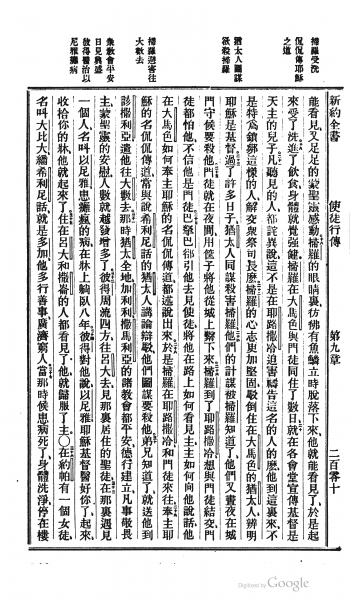 新約全書 使徒行傳 第九章 二百零十
掃羅受洗
侃侃傳耶穌
之道
猶太人圖謀
殺掃羅
掃羅避害往
大數去
衆教會平安
日見興盛
彼得醫治以
尼雅癱病
能看見又足足的蒙聖靈感動掃羅的眼睛裏彷彿有魚鱗立時脫落下來他就能看見了於是起
來受了洗進了飲食身體就覺強健掃羅在大馬色與門徒同住了數日就在各會堂宣傳基督是
天主的兒子凡聽見的人都詫異說這不是在耶路撒冷迫害禱告這名的人的麽他到這裏來不
是特為鎖綁這樣的人解交衆祭司長麽掃羅的心志更加堅固駁倒住在大馬色的猶太人辨明
耶穌是基督過了許多日子猶太人同謀殺害掃羅他們的計謀被掃羅知道了他們又晝夜在城
門守候要殺他門徒就在夜間用筐子將他從城上縋下來掃羅到了耶路撒冷想與門徒結交門
徒都怕他不信他是門徒巴拏巴都引他去見使徒將他在路上如何看見主主如何向他說話他
在大馬色如何奉主耶穌的名侃侃傳道都述說出來於是掃羅在耶路撒冷和門徒來往奉主耶
穌的名侃侃傳道常與說希利尼話的猶太人講論辯駁他們圖謀要殺他弟兄知道了就送他到
該撒利亞遣他往大數去那時猶太全地加利利撒馬利亞的諸教會都平安德行建立凡事敬畏
主蒙聖靈的安慰人數就越發增多了彼得周流四方往呂大去見那裏居住的聖徒在那裏遇見
一個人名叫以尼雅患癱瘓的病在牀上躺臥八年彼得對他說以尼雅耶穌基督醫好你了起來
收拾你的牀他就起來了住在呂大和撒崙的人都看見了他就歸服了主○在約帕有一個女徒
名叫大比大繙希利尼話就是多加他多行善事廣濟窮人當那時候患病死了身體洗淨停在樓
Digitized by Google